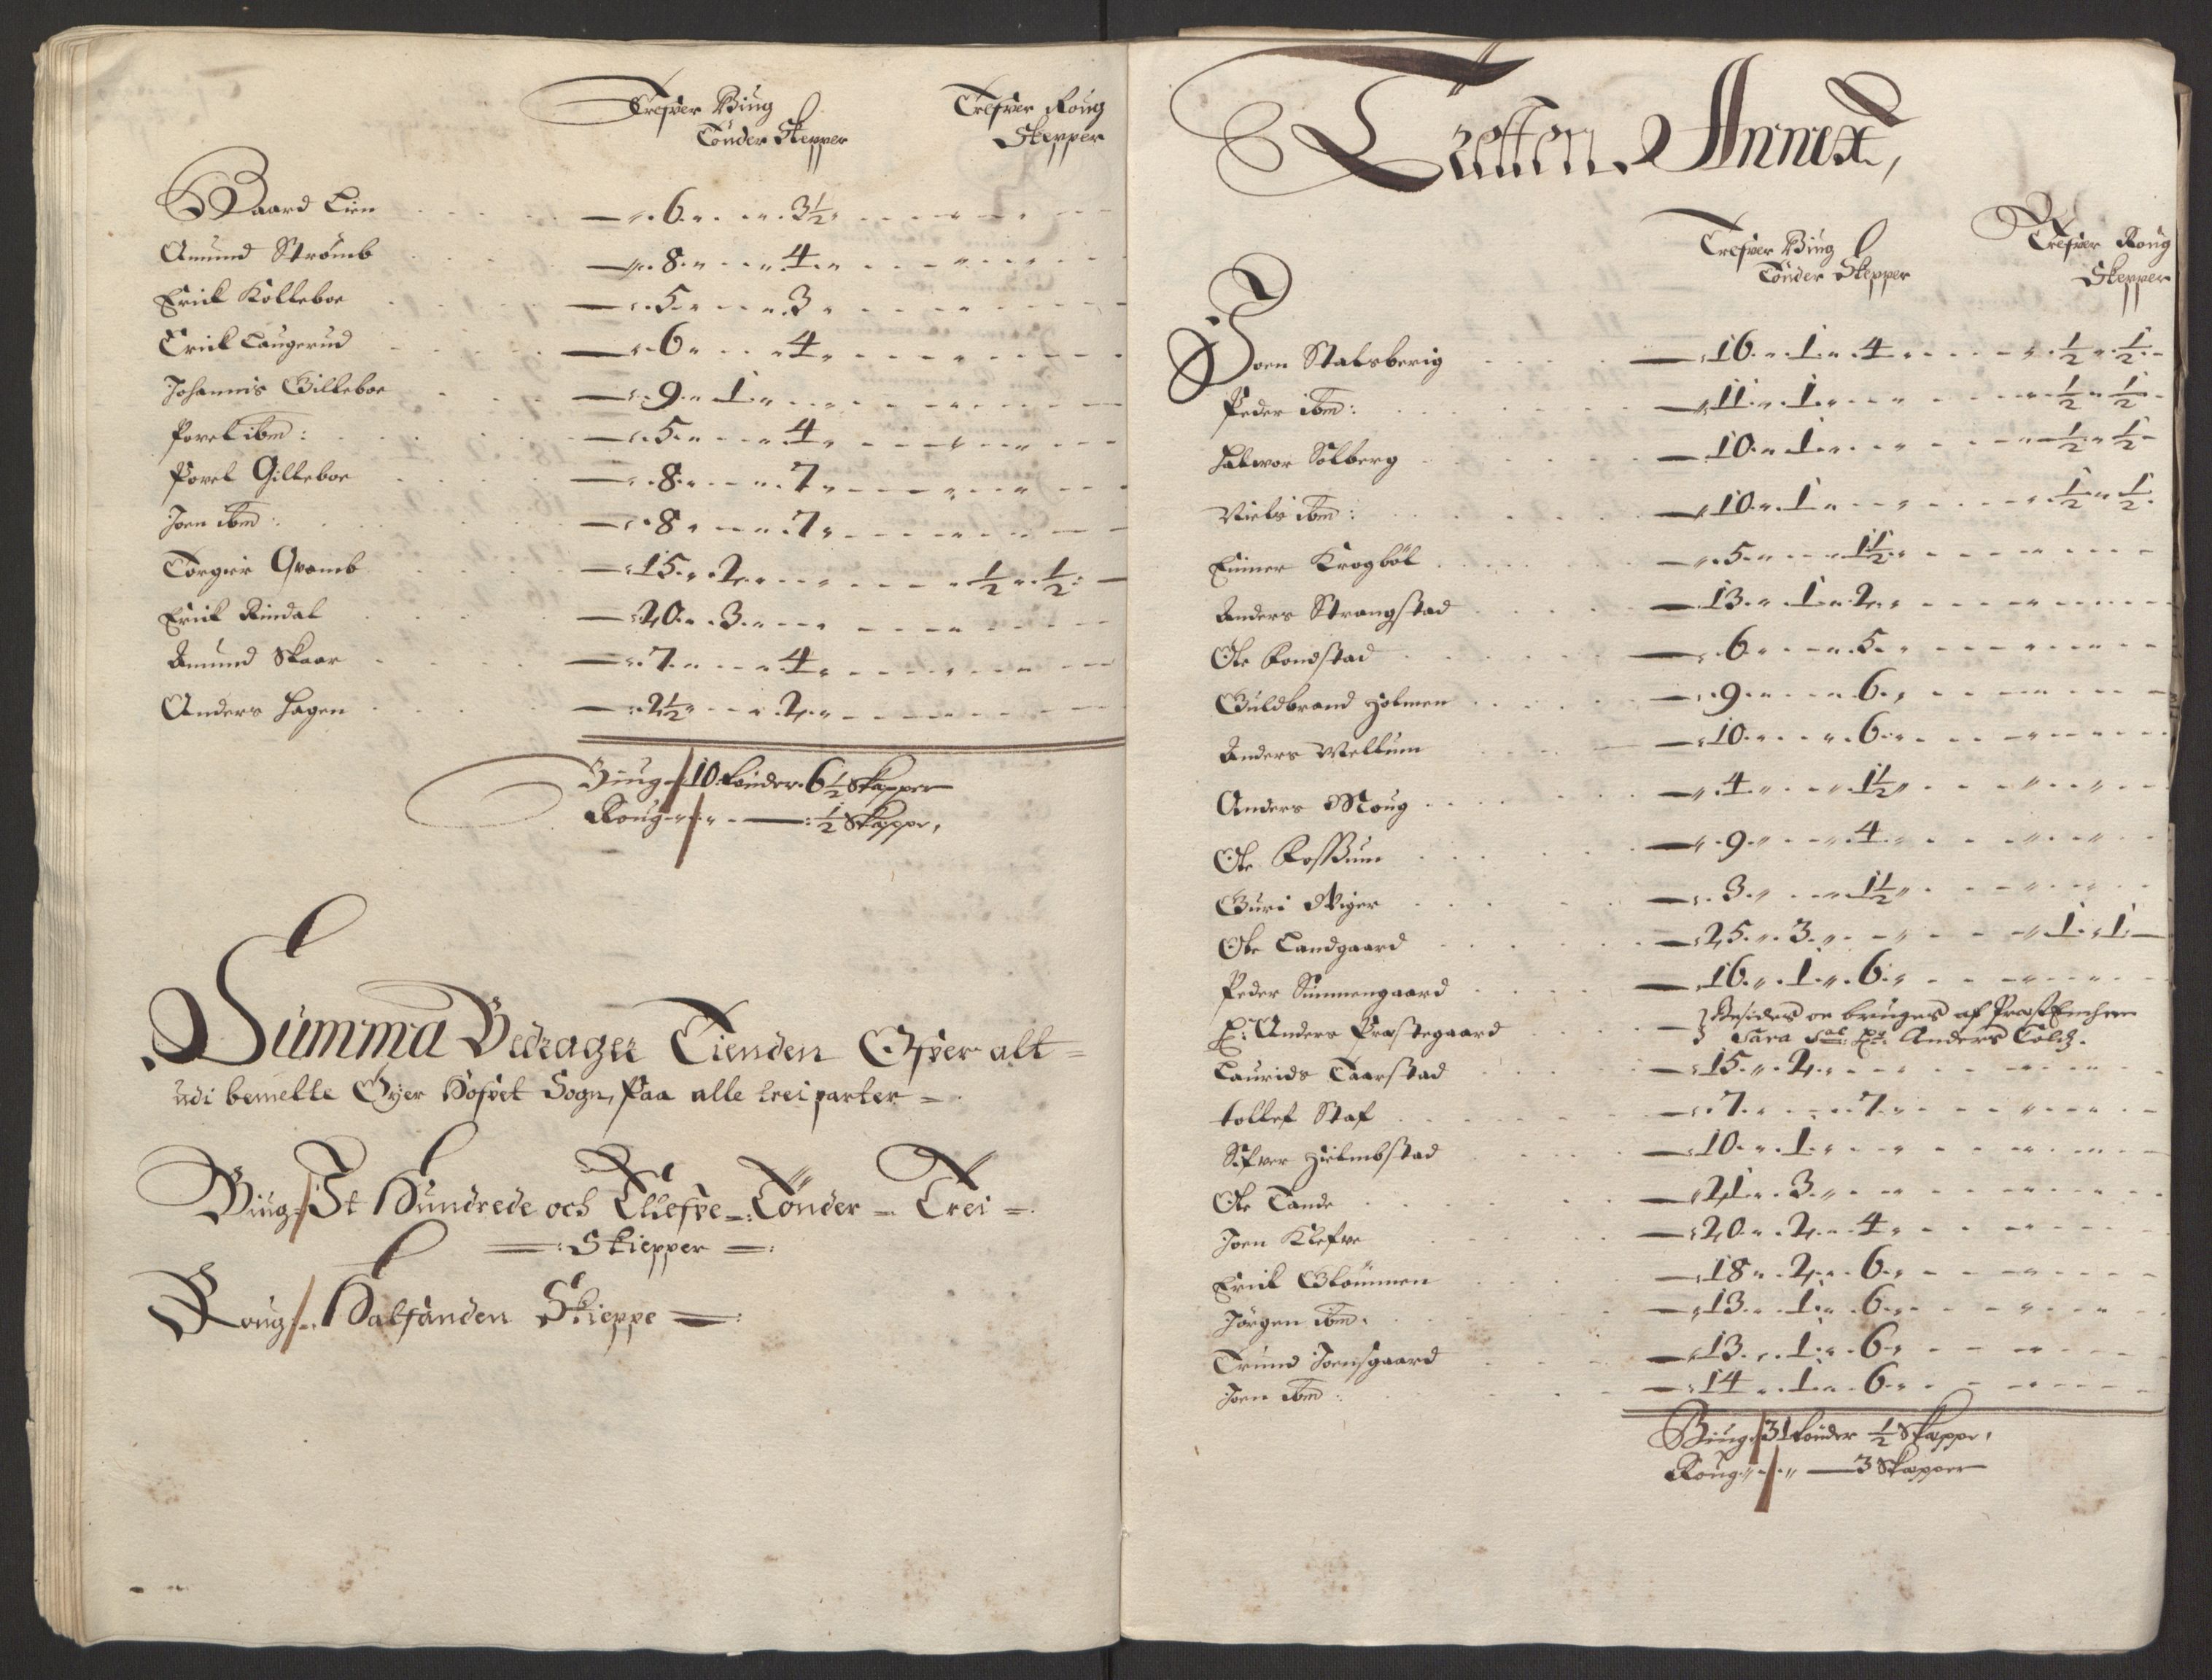 Trefver Biug
Tönder Skepper
Trefver Roug
Skepper
Baard Lien — 6 — 3½
Amund Strömb — 8 — 4
Erick Kolleboe — 5 — 3
Erick Laugerud — 6 — 4
Johannis Gilleboe — 9 — 1
Povel ibm: — 5 — 4
Povel Gilleboe — 8 — 7
Joen ibm: — 8 — 7
Torgier Gramb — 15 — 2 — ½ — ½
Erick Rindal — 20 — 3
Amund Skaar — 7 — 4
Anders Hagen — 2½ — 2
Biug 10 tönder 6½ Skepper
Roug — ½ Skeppe,
Summa Bedrager Tienden Ofver alt =
udi bemelte Oyer Hofvet Sogn, Paa alle trei parter =
Biug It Hundrede och Ellefve Tönder Trei
Skiepper
Roug Halfanden Skieppe
Tretten Annex,
Trefver Biug
Tönder Skepper
Trefver Roug
Skepper
Joen Stalsberig — 16 — 1 — 4 — ½ — ½
Peder ibm: — 11 — 1 — ½ — ½
Halvor Solberg — 10 — 1 — ½ — ½
Niels ibm: — 10 — 1 — ½ — ½
Einner Krogböl — 5 — 1½
Anders Strangstad — 13 — 1 — 2
Ole Fondstad — 6 — 5
Guldbrand Holmen — 9 — 6
Anders Mellum — 10 — 6
Anders Moug — 4 — 1½
Ole Fossum — 9 — 4
Guri Viger — 3 — 1½
Ole Landgaard — 25 — 3 — 1 — 1
Peder Sunnengaard — 16 — 1 — 6
Hr: Anders Præstegaard — Resides oc bruges af Præst Enchen
Sara Sal: Hr: Anders Colds.
Laurids Taarstad — 15 — 2
tollef Staf — 7 — 7
Sifver Hielmbstad — 10 — 1
Ole Tande — 21 — 3
Joen Klefve — 20 — 2 — 4
Erick Glömmen — 18 — 2 — 6
Jörgen ibm: — 13 — 1 — 6
Trund Joensgaard — 13 — 1 — 6
Joen ibm: — 14 — 1 — 6
Biug 31 tönder ½ Skeppe,
Roug — 3 Skepper